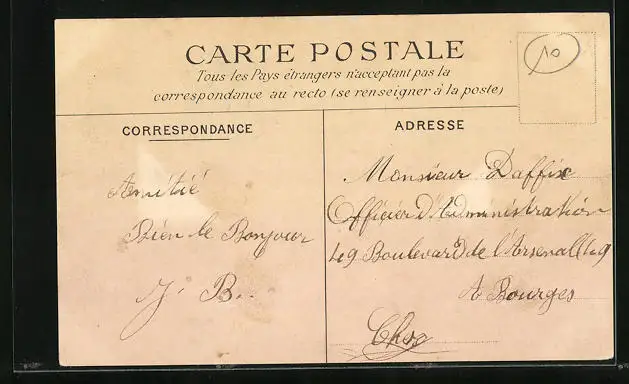 CARTE POSTALE
Tous les Pays étrangers n'acceptent pas la
correspondance au recto (se renseigner à la poste)
10
CORRESPONDANCE
ADRESSE
Amitié
Bien le Bonjour
J. B..
Monsieur Daffix
Officier d'Administration
49 Boulevard de l'Arsenal 49
A Bourges
Cher